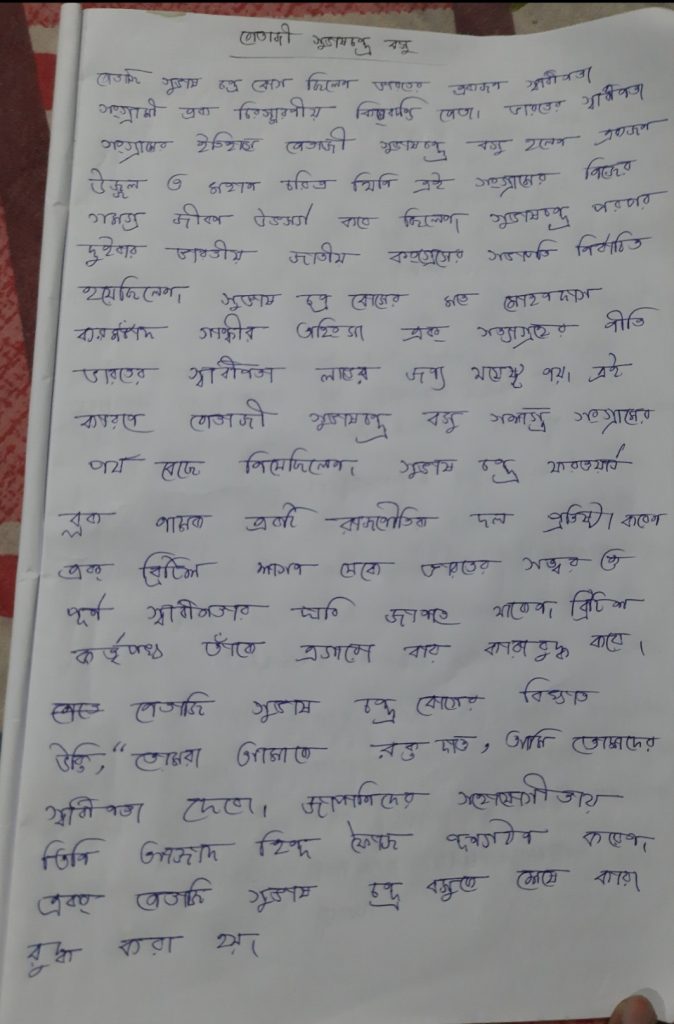 নেতাজী সুভাষচন্দ্র বসু
নেতাজি সুভাষ চন্দ্র বোস ছিলেন ভারতের একজন স্বাধীনতা
সংগ্রামী এবং চিরস্মরণীয় কিংবদন্তি নেতা। ভারতের স্বাধীনতা
সংগ্রামের ইতিহাসে নেতাজী সুভাষচন্দ্র বসু হলেন একজন
উজ্জ্বল ও মহান চরিত্র যিনি এই সংগ্রামের নিজের
সমগ্র জীবন উৎসর্গ করে ছিলেন। সুভাষচন্দ্র পরপর
দুইবার ভারতীয় জাতীয় কংগ্রেসের সভাপতি নির্বাচিত
হয়েছিলেন। সুভাষ চন্দ্র বোসের মতে মোহনদাস
করমচাঁদ গান্ধীর অহিংসা এবং সত্যাগ্রহের নীতি
ভারতের স্বাধীনতা লাভের জন্য যথেষ্ট নয়। এই
কারণে নেতাজী সুভাষচন্দ্র বসু সশস্ত্র সংগ্রামের
পথ বেছে নিয়েছিলেন। সুভাষ চন্দ্র ফরওয়ার্ড
ব্লক নামক একটি রাজনৈতিক দল প্রতিষ্ঠা করেন
এবং ব্রিটিশ শাসন থেকে ভারতের সত্বর ও
পূর্ণ স্বাধীনতার দাবি জানাতে থাকেন। ব্রিটিশ
কর্তৃপক্ষ তাঁকে এগারো বার কারারুদ্ধ করে।
নেতাজি সুভাষ চন্দ্র বোসের বিখ্যাত
উক্তি, "তোমরা আমাকে রক্ত দাও, আমি তোমাদের
স্বাধীনতা দেবো। জাপানিদের সহযোগীতায়
তিনি আজাদ হিন্দ ফৌজ পুনর্গঠন করেন।
এবং নেতাজি সুভাষ চন্দ্র বসুকে শেষে কারা
রুদ্ধ করা হয়।